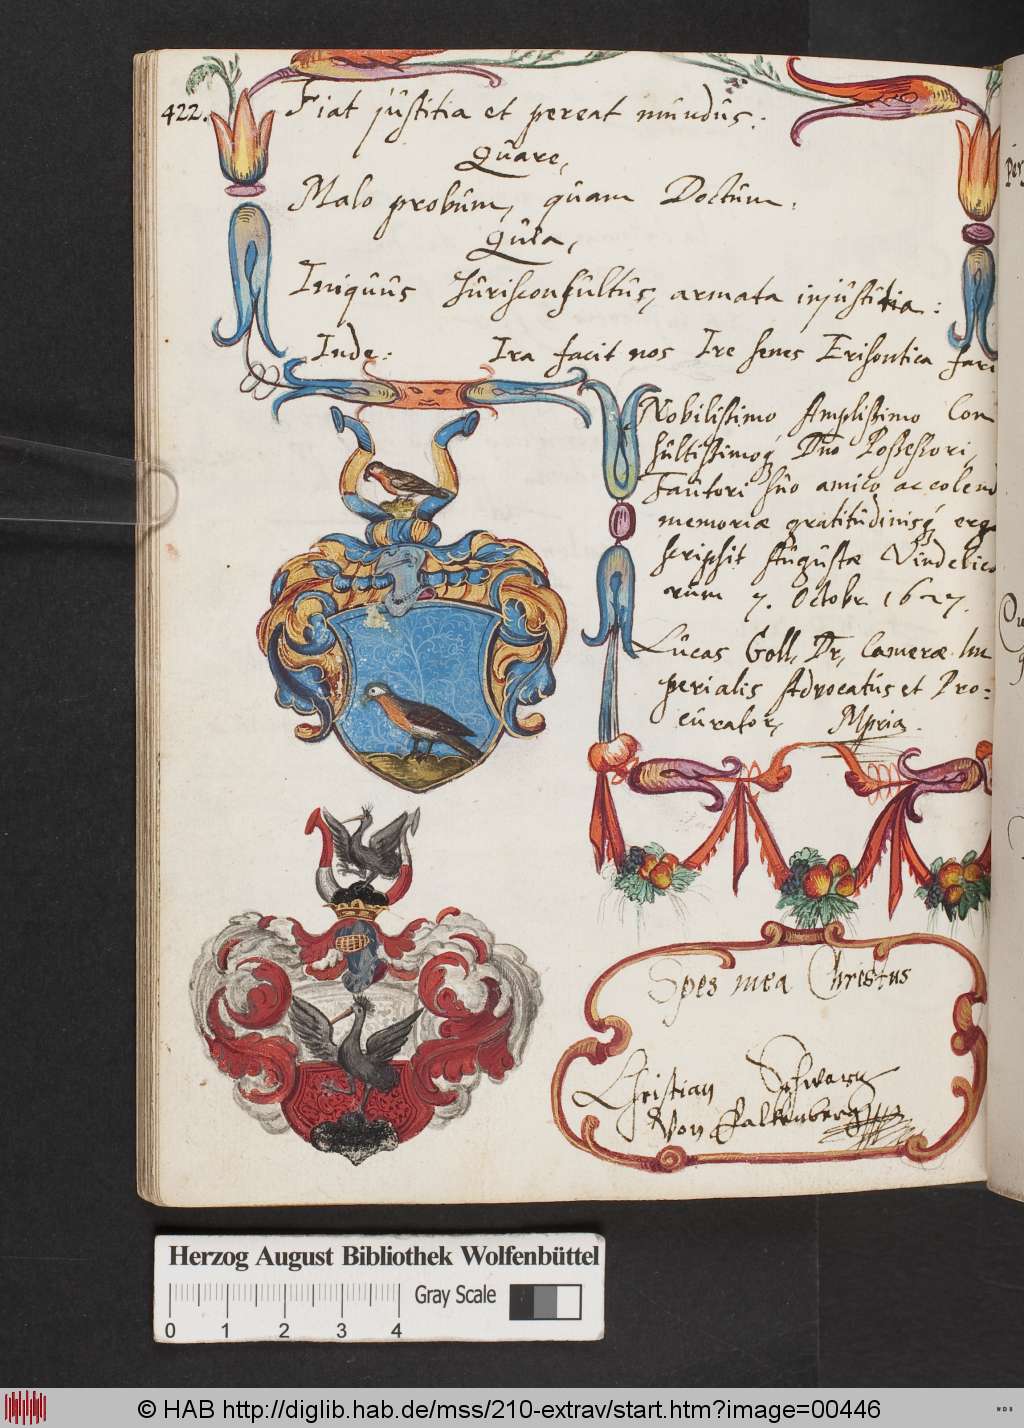 422.
Fiat justitia et pereat mundus:
Quare,
Malo probum, quam Doctum.
Quia,
Iniquus Jurisconsultus, armata injustitia:
Inde: Ira facit nos Ire senes
Nobilissimo Amplissimo Con
sultissimoq́ Dño Possessori,
Fautori suo amico ac colend
memoriæ gratitudinisq́ ergo
scripsit Augustæ Vindelico
rum 7. Octobr 1627.
Lucas Goll, Dr, Cameræ Im
perialis Advocatus et Pro=
curator, Mpria.
Spes mea Christus
Christian Schwarz
Von Falkenberg
Herzog August Bibliothek Wolfenbüttel
Gray Scale
0 1 2 3 4
© HAB http://diglib.hab.de/mss/210-extrav/start.htm?image=00446